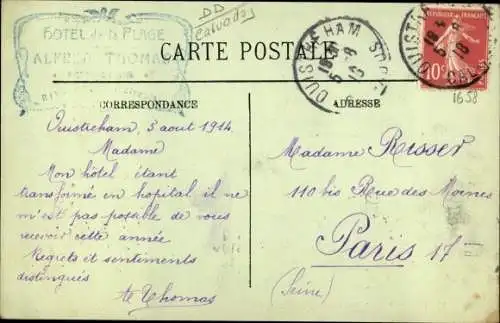 HÔTEL de la PLAGE
ALFRED THOMAS
DD
Calvados
CARTE POSTALE
OUISTREHAM
5 - 8
REPUBLIQUE FRANCAISE
10c
1658
CORRESPONDANCE
ADRESSE
Ouistreham, 5 aout 1914
Madame
Mon hôtel étant
transformé en hopital il ne
m'est pas posible de vous
recevoir cette année
Regrets et sentiments
distingués
Thomas
Madame Risser
110 bis Rue des Moines
Paris 17
(Seine)